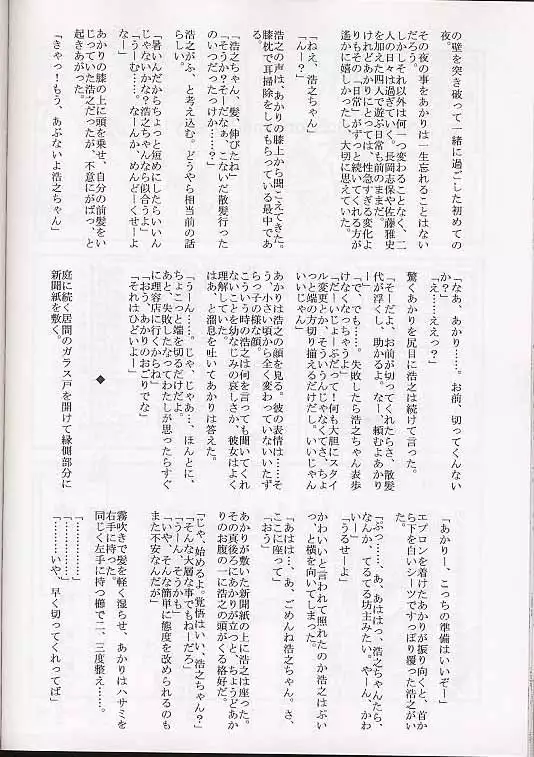 の壁を突き破って一緒に過ごした初めての
夜。
その夜の事をあかりは一生忘れることはない
だろう。
しかしそれ以外は何一つ変わることなく、二
人の日々は過ぎていく。長岡志保や佐藤雅史
を加えた四人で遊ぶ日常も前のままだ。
けれどあかりにとっては、性急すぎる変化よ
りもその「日常」がずっと続いてくれる方が
遙かに嬉しかったし、大切に思えていた。
「ねえ、浩之ちゃん」
「んー？」
浩之の声は、あかりの膝上から聞こえてきた。
膝枕で耳掃除をしてもらっている最中であ
る。
「浩之ちゃん、髪、伸びたね」
「そうか？そーだなぁ、こないだ散髪行った
のいつだったっけか……？」
浩之がふ、と考え込む。どうやら相当前の話
らしい。
「暑いんだからちょっと短めにしたらいいん
じゃないかな？浩之ちゃんなら似合うよ」
「うーむ……。なーんか、めんどーくせーよ
なー」
あかりの膝の上に頭を乗せ、自分の前髪をい
じっていた浩之だったが、不意にがばっ、と
起きあがった。
「きゃっ！もう、あぶないよ浩之ちゃん」
「なぁ、あかり……。お前、切ってくんない
か？」
「え……ええっ？」
驚くあかりを尻目に浩之は続けて言った。
「そーだよ、お前が切ってくれたらさ、散髪
代が浮くし、助かるよ。なー、頼むよあかり
「で、でも……失敗したら浩之ちゃん表歩
けなくなっちゃうよ」
「だーいじょーぶだって！何も大胆にスタイ
ル変更とか、そういうんじゃなくてさ、ちょ
っと端の方切り揃えるだけだし。いいじゃん
いいじゃん」
あかりは浩之の顔を見る。彼の表情は……そ
う、小さい頃から全く変わっていないいたず
らっ子の様な顔。
こういう時の浩之は何を言っても聞いてくれ
ないことを幼なじみの哀しさか、彼女はよく
理解していた。
はあ、と溜息を吐いてあかりは答えた。
「うーん……。じゃ、じゃあ…、ほんとに、
ちょこっと端を切るだけだよ。
あと、失敗したなってわたしが思ったらすぐ
に理容店に行くからね」
「おう、あかりのおごりでな」
「それはひどいよー」
◆
庭に続く居間のガラス戸を開けて縁側部分に
新聞紙を敷く。
「あかりー、こっちの準備はいいぞー」
エプロンを着けたあかりが振り向くと、首か
ら下を白いシーツですっぽり覆った浩之がい
た。
「ぷっ……、あ、あははっ、浩之ちゃんたら、
なんか、てるてる坊主みたい。やーん、かわ
「うるせーよ」
かわいいと言われて照れたのか浩之はぷい
っ、と横を向いてしまった。
「あはは…、あ、ごめんね浩之ちゃん。さ、
ここに座って」
「おう」
あかりが敷いた新聞紙の上に浩之は座った。
その真後ろにあかりが立つと、ちょうどあか
りのお腹の一に浩之の頭がくる格好だ。
「じゃ、始めるよ。覚悟はいい、浩之ちゃん？」
「そんな大層な事でもねーだろ」
「うーん、そうかも」
「いや、そんな簡単に態度を改められるのも
また不安なんだが」
霧吹きで髪を軽く湿らせ、あかりはハサミを
右手に持った。
同じく左手に持つ櫛で二、三度整え……。
「…………」
「…………」
「……いや、早く切ってくれってば」